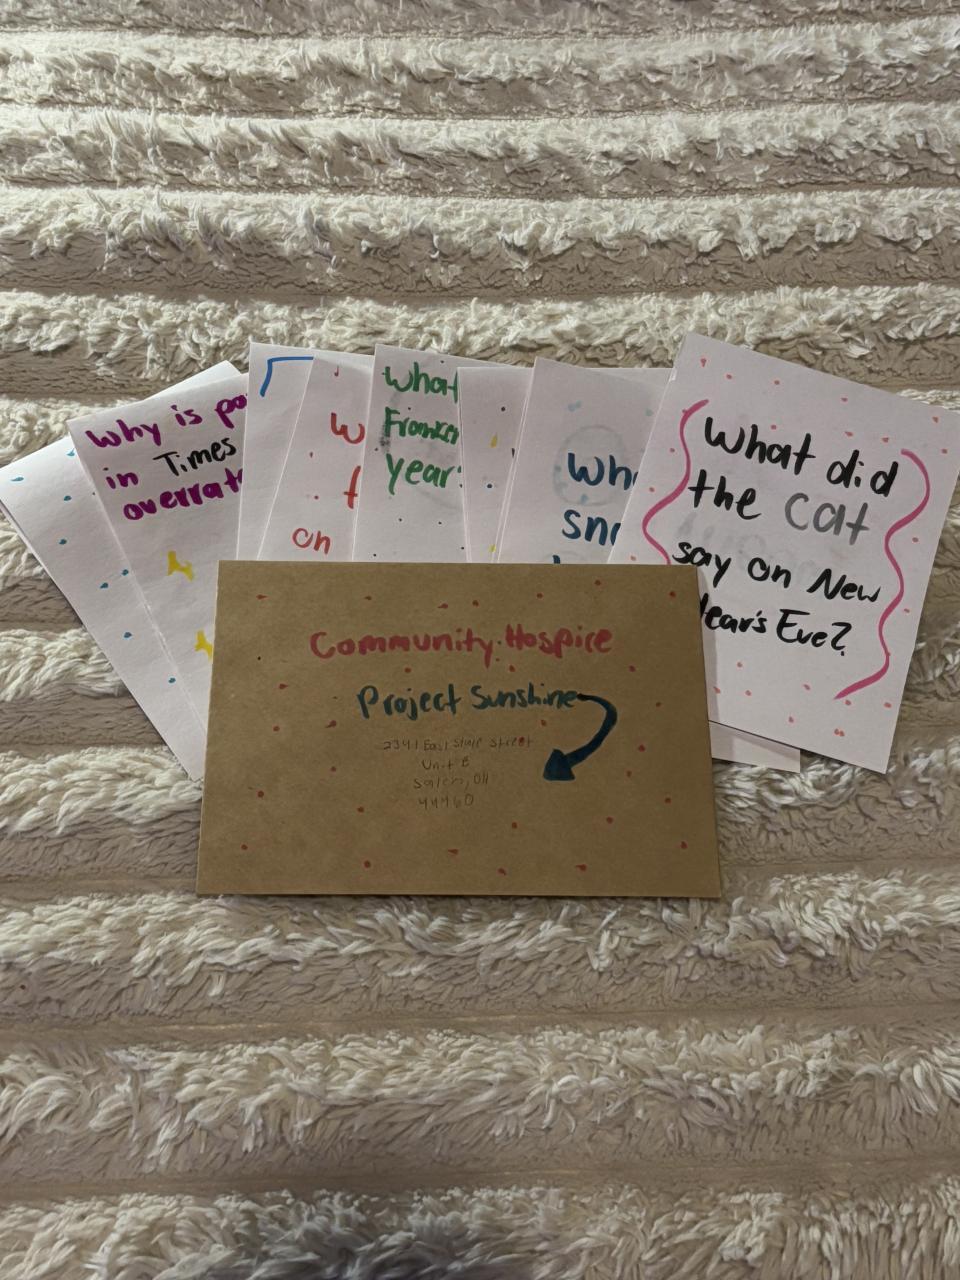 Why is pa
in Times
overrat
W
f
on
What
Franken
year?
Wha
sno
What did
the Cat
say on New
Year's Eve?
Community Hospice
Project Sunshine
2341 East State Street
Unit B
Salem, OH
44460